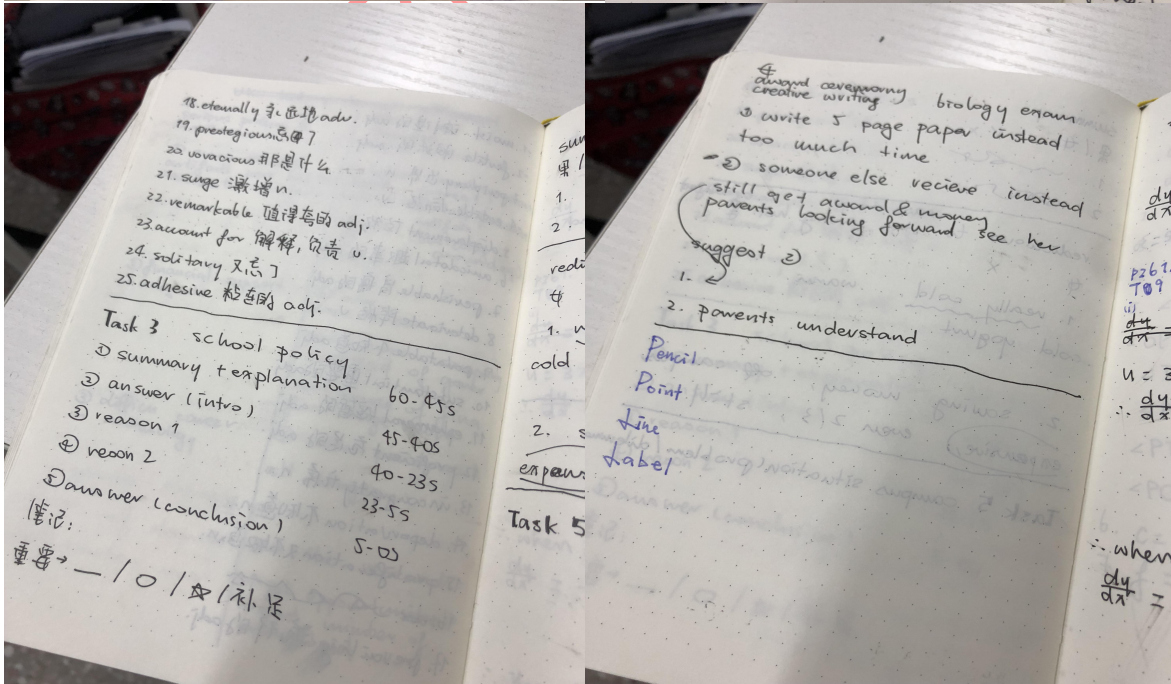 18. eternally 永远地 adv.
19. prestegious 忘了
20. voracious 那是什么
21. surge 激增 n.
22. remarkable 值得 的 adj.
23. account for 解释, 负责 v.
24. solitary 又忘了
25. adhesive 粘 的 adj.
Task 3 school policy
① summary + explanation 60-45s
② answer (intro) 45-40s
③ reason 1 40-23s
④ reson 2 23-5s
⑤ answer (conclusion) 5-0s
笔记:
重要→ — / ○ / ☆ / 补足
1.
2.
1.
cold
2.
Task 5
award ceremony biology exam
creative writing
① write 5 page paper instead
too much time
② someone else recieve instead
still get award & money
parents looking forward see her
suggest ②
1.
2. parents understand
Pencil
Point
Line
Label
dy
dx
p261
T09
(i)
dy
dx =
u = 3
∴ dy
dx
∴ when
dy
dx =